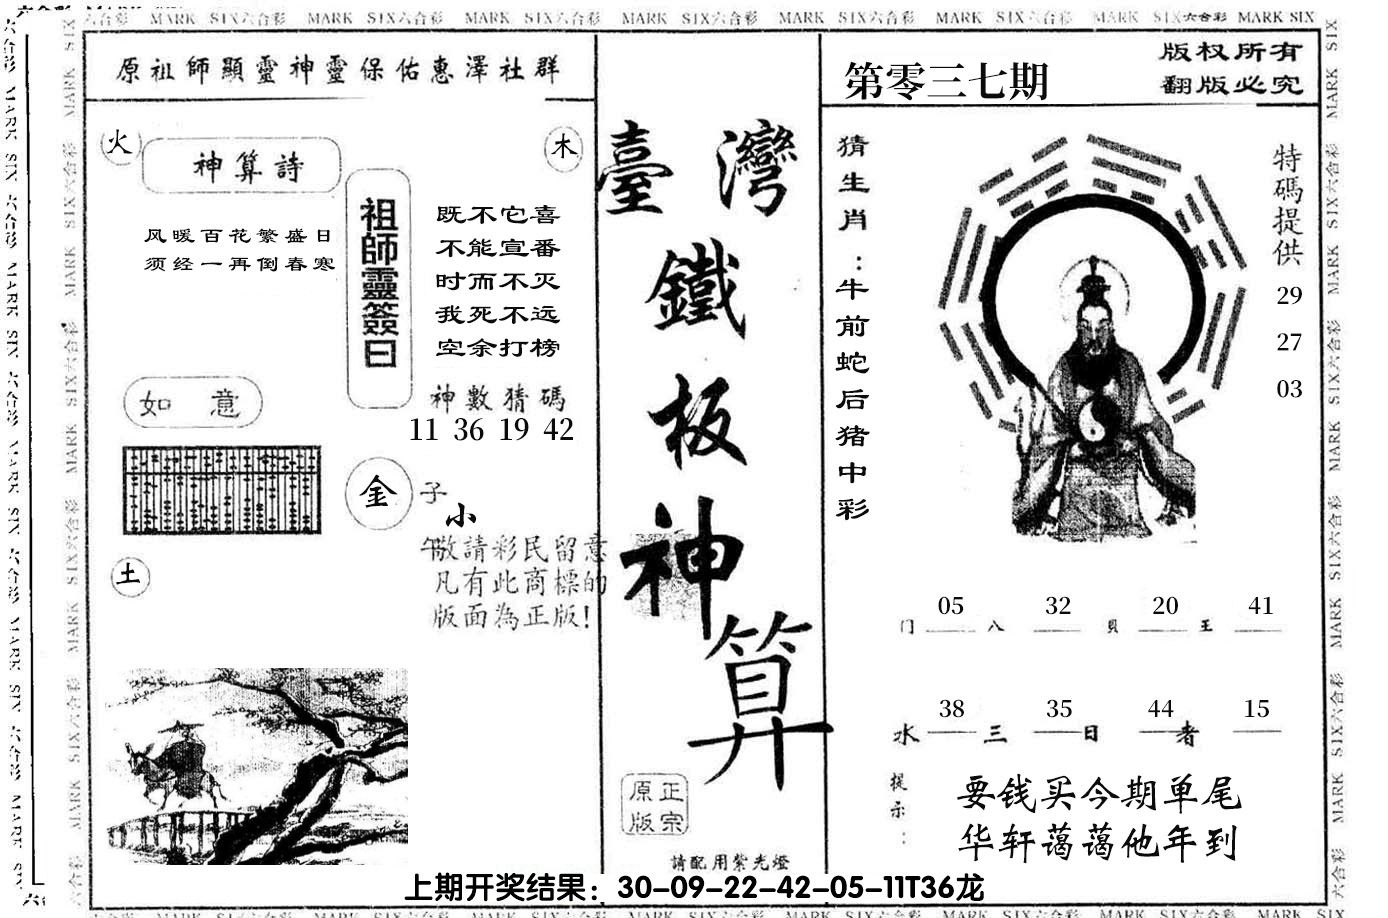 六合彩 MARK SIX六合彩 MARK SIX六合彩 MARK SIX六合彩 MARK SIX六合彩 MARK SIX六合彩 MARK SIX六合彩 MARK SIX六合彩 MARK SIX
原祖師顯靈神靈保佑惠澤社群
火
神算詩
木
风暖百花繁盛日
须经一再倒春寒
祖師靈簽曰
既不它喜
不能宣番
时而不灭
我死不远
空余打榜
神數猜碼
11 36 19 42
如 意
金
子
小
午
敬請彩民留意
凡有此商標的
版面為正版!
土
臺灣
鐵
板
神
算
原正
版宗
請配用紫光燈
第零三七期
版权所有
翻版必究
猜生肖:牛前蛇后猪中彩
特碼提供
29
27
03
05 32 20 41
门 八 貝 王
38 35 44 15
水 三 日 者
提示:
要钱买今期单尾
华轩蔼蔼他年到
上期开奖结果：30-09-22-42-05-11T36龙